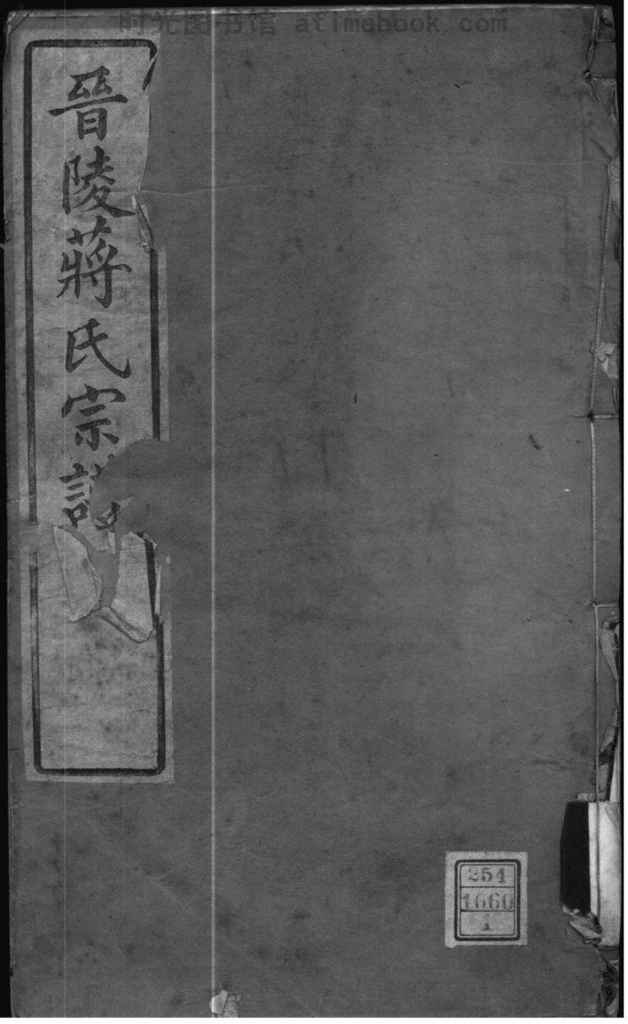 时光图书馆 afimabook.com
晉陵蔣氏宗譜
254
1660
1